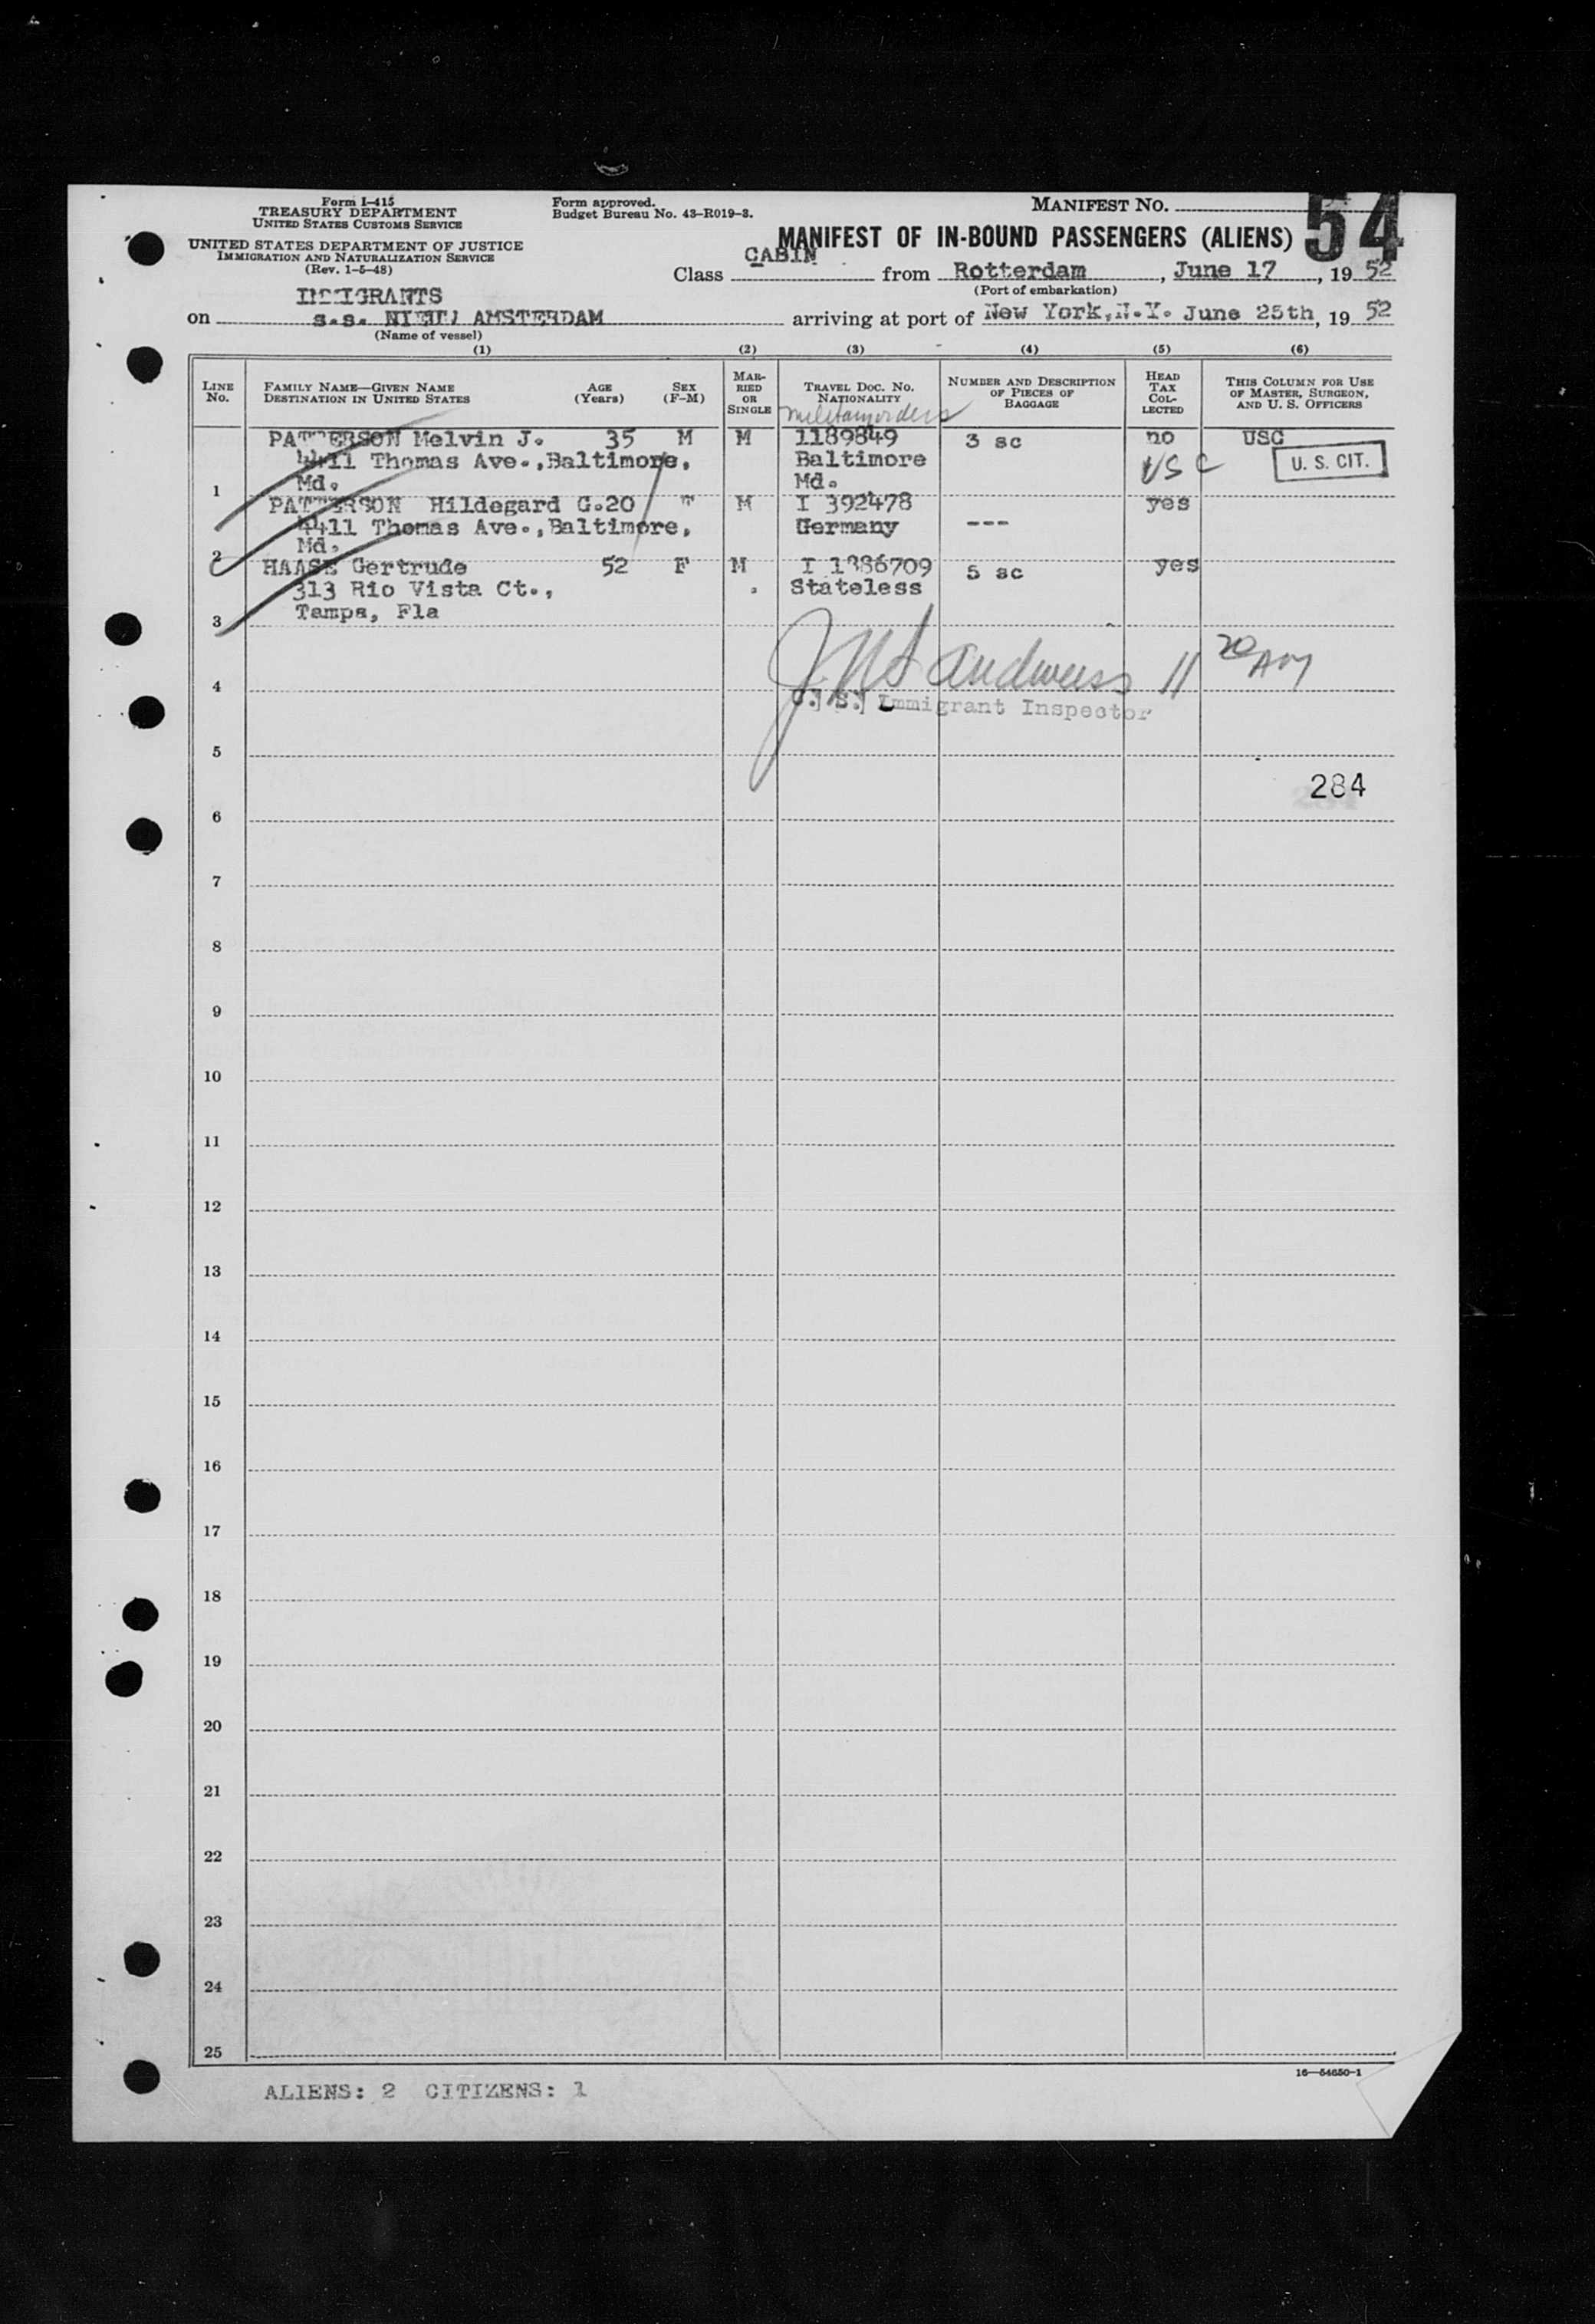 Form I-415
TREASURY DEPARTMENT
UNITED STATES CUSTOMS SERVICE
UNITED STATES DEPARTMENT OF JUSTICE
IMMIGRATION AND NATURALIZATION SERVICE
(Rev. 1-5-48)
Form approved.
Budget Bureau No. 43-R019-3.
MANIFEST NO. 54
MANIFEST OF IN-BOUND PASSENGERS (ALIENS)
Class CABIN from Rotterdam, June 17, 1952
(Port of embarkation)
IMMIGRANTS
on s.s. NIEUW AMSTERDAM arriving at port of New York, N.Y. June 25th, 1952
(Name of vessel)
(1) (2) (3) (4) (5) (6)
LINE No. FAMILY NAME—GIVEN NAME DESTINATION IN UNITED STATES AGE (Years) SEX (F-M) MARRIED OR SINGLE TRAVEL DOC. NO. NATIONALITY NUMBER AND DESCRIPTION OF PIECES OF BAGGAGE HEAD TAX COLLECTED THIS COLUMN FOR USE OF MASTER, SURGEON, AND U. S. OFFICERS
military orders
PATTERSON Melvin J. 35 M M 1189849 3 sc no USC
4411 Thomas Ave., Baltimore, Baltimore USC U. S. CIT.
1 Md. Md.
PATTERSON Hildegard G. 20 F M I 392478 yes
4411 Thomas Ave., Baltimore, Germany ---
2 Md.
HAASE Gertrude 52 F M I 1386709 5 sc yes
313 Rio Vista Ct., Stateless
3 Tampa, Fla
11 20 AM
4
U. S. Immigrant Inspector
5
284
6
7
8
9
10
11
12
13
14
15
16
17
18
19
20
21
22
23
24
25
16—54650-1
ALIENS: 2 CITIZENS: 1